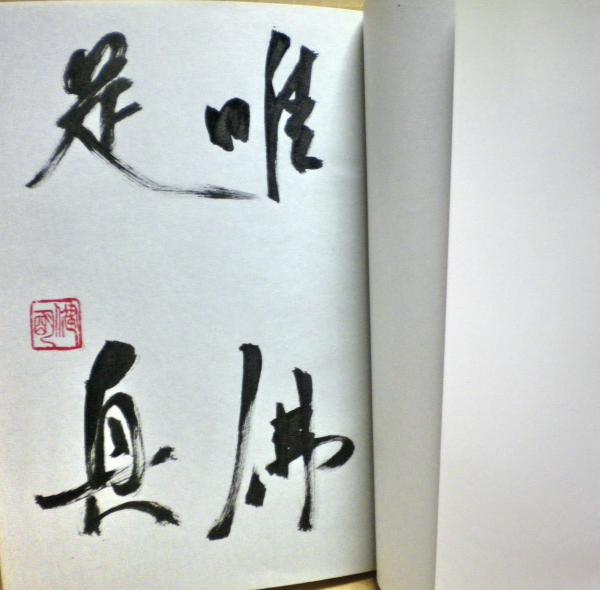 唯佛
是真